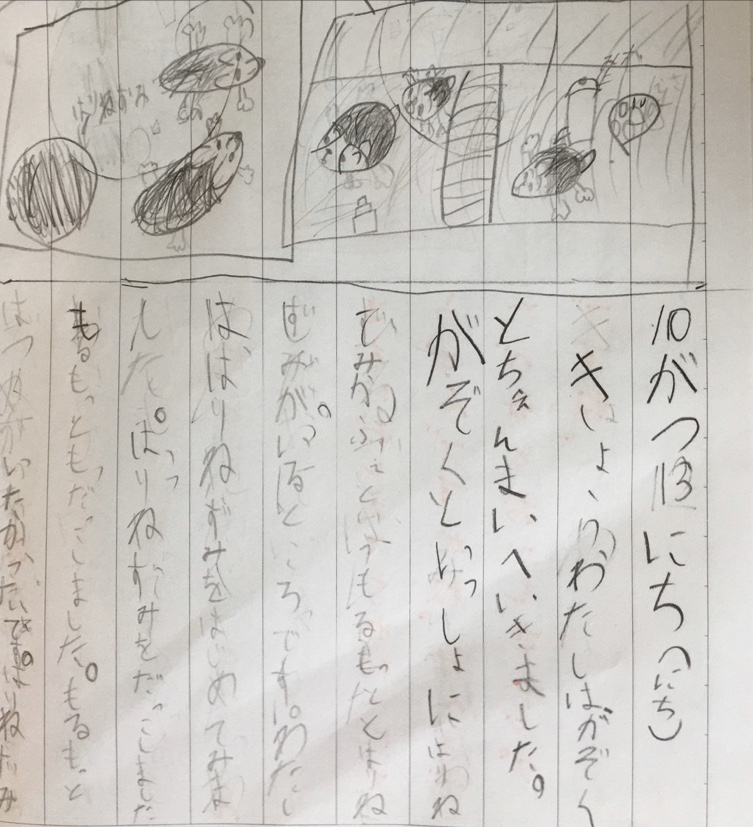 はりねずみ
10がつ13にち(にち)
きょうわたしはがぞく
とちぇんまいへいきました。
がぞくといっしょにはりね
ずみかふぇと
ずみがいるところです。わたし
ははりねずみをはじめてみま
した。はりねずみをだっこしました
もるもっともだっこしました。もるもっと
はつめがいたかったいです。はりねずみ